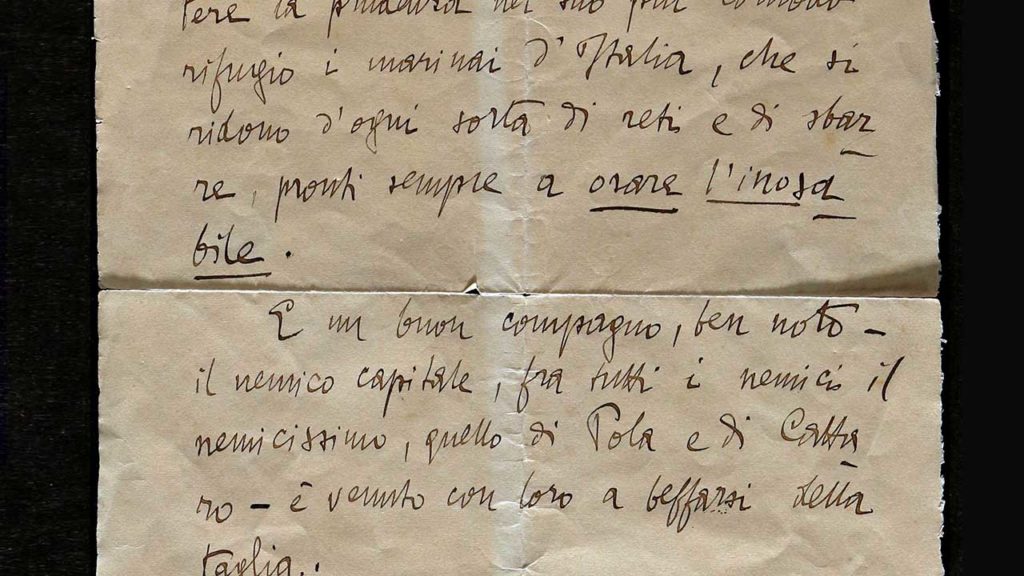 tere la prudenza nel suo più comodo
rifugio i marinai d'Italia, che si
ridono d'ogni sorta di reti e di sbar
re, pronti sempre a osare l'inosa
bile.
E un buon compagno, ben noto –
il nemico capitale, fra tutti i nemici il
nemicissimo, quello di Pola e di Catta
ro – è venuto con loro a beffarsi della
taglia.